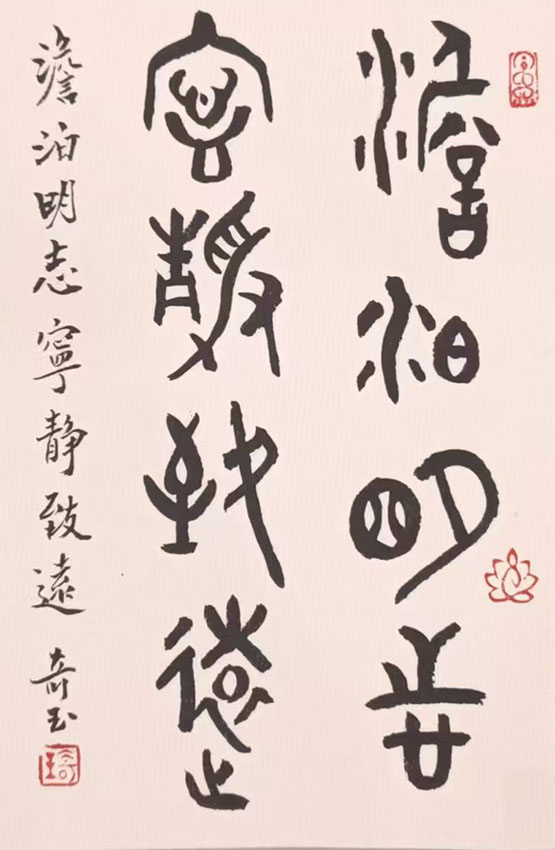 澹泊明志
寧靜致遠
澹泊明志寧靜致遠 奇玉